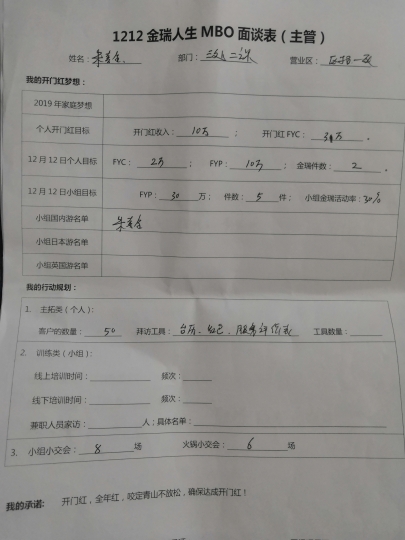 1212 金瑞人生 MBO 面谈表（主管）
姓名： 部门： 二课 营业区：
我的开门红梦想：
2019 年家庭梦想
个人开门红目标 开门红收入：10万； 开门红 FYC：3万。
12 月 12 日个人目标 FYC：2万； FYP：10万； 金瑞件数：2。
12 月 12 日小组目标 FYP：30万； 件数：5件； 小组金瑞活动率：30%
小组国内游名单
小组日本游名单
小组英国游名单
我的行动规划：
1. 主拓类（个人）：
客户的数量：50 拜访工具：台历、红包、服务评价表 工具数量：
2. 训练类（小组）：
线上培训时间： 频次：
线下培训时间： 频次：
兼职人员家访： 人；具体名单：
3. 小组小交会：8场 火锅小交会：6场
我的承诺： 开门红，全年红，咬定青山不放松，确保达成开门红！